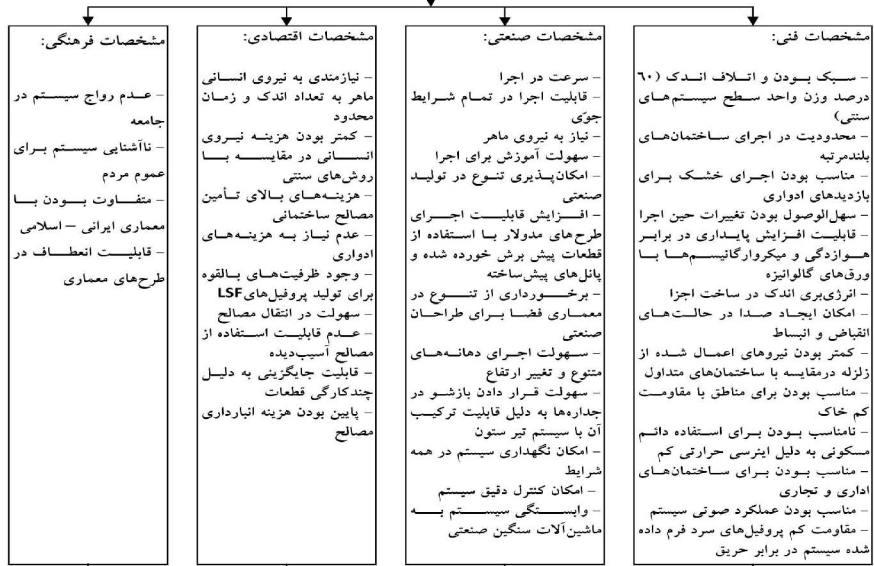 مشخصات فنی:
– سبک بودن و اتلاف اندک (٦٠
درصد وزن واحد سطح سیستم‌های
سنتی)
– محدودیت در اجرای ساختمان‌های
بلندمرتبه
– مناسب بودن اجرای خشک برای
بازدیدهای ادواری
– سهل‌الوصول بودن تغییرات حین اجرا
– قابلیت افزایش پایداری در برابر
هوازدگی و میکروارگانیسم‌ها با
ورق‌های گالوانیزه
– انرژی‌بری اندک در ساخت اجزا
– امکان ایجاد صدا در حالت‌های
انقباض و انبساط
– کمتر بودن نیروهای اعمال شده از
زلزله درمقایسه با ساختمان‌های متداول
– مناسب بودن برای مناطق با مقاومت
کم خاک
– نامناسب بودن برای استفاده دائم
مسکونی به دلیل اینرسی حرارتی کم
– مناسب بودن برای ساختمان‌های
اداری و تجاری
– مناسب بودن عملکرد صوتی سیستم
– مقاومت کم پروفیل‌های سرد فرم داده
شده سیستم در برابر حریق
مشخصات صنعتی:
– سرعت در اجرا
– قابلیت اجرا در تمام شرایط
جوّی
– نیاز به نیروی ماهر
– سهولت آموزش برای اجرا
– امکان‌پذیری تنوع در تولید
صنعتی
– افزایش قابلیت اجرای
طرح‌های مدولار با استفاده از
قطعات پیش برش خورده شده و
پانل‌های پیش‌ساخته
– برخورداری از تنوع در
معماری فضا برای طراحان
صنعتی
– سهولت اجرای دهانه‌های
متنوع و تغییر ارتفاع
– سهولت قرار دادن بازشو در
جداره‌ها به دلیل قابلیت ترکیب
آن با سیستم تیر ستون
– امکان نگهداری سیستم در همه
شرایط
– امکان کنترل دقیق سیستم
– وابستگی سیستم به
ماشین‌آلات سنگین صنعتی
مشخصات اقتصادی:
– نیازمندی به نیروی انسانی
ماهر به تعداد اندک و زمان
محدود
– کمتر بودن هزینه نیروی
انسانی در مقایسه با
روش‌های سنتی
– هزینه‌های بالای تأمین
مصالح ساختمانی
– عدم نیاز به هزینه‌های
ادواری
– وجود ظرفیت‌های بالقوه
برای تولید پروفیل‌های LSF
– سهولت در انتقال مصالح
– عدم قابلیت استفاده از
مصالح آسیب‌دیده
– قابلیت جایگزینی به دلیل
چندکارگی قطعات
– پایین بودن هزینه انبارداری
مصالح
مشخصات فرهنگی:
– عدم رواج سیستم در
جامعه
– ناآشنایی سیستم برای
عموم مردم
– متفاوت بودن با
معماری ایرانی – اسلامی
– قابلیت انعطاف در
طرح‌های معماری